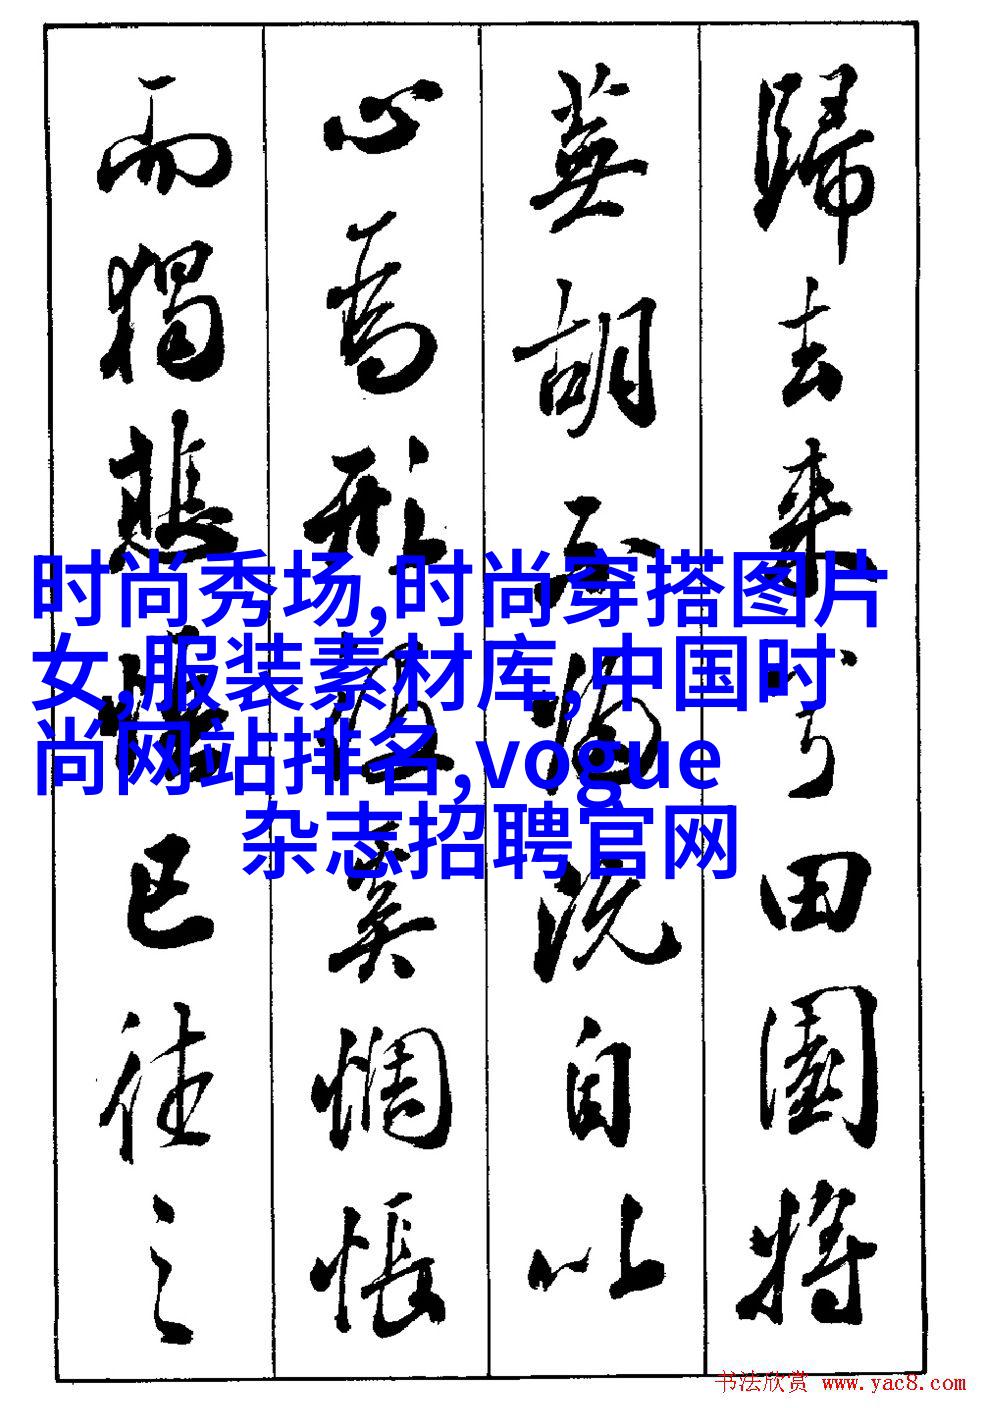 歸去來兮田園將
蕪胡不歸既自以
心為形役奚惆悵
而獨悲悟已往之
时尚秀场,时尚穿搭图片
女,服装素材库,中国时
尚网站排名,vogue
杂志招聘官网
书法欣赏 www.yac8.com